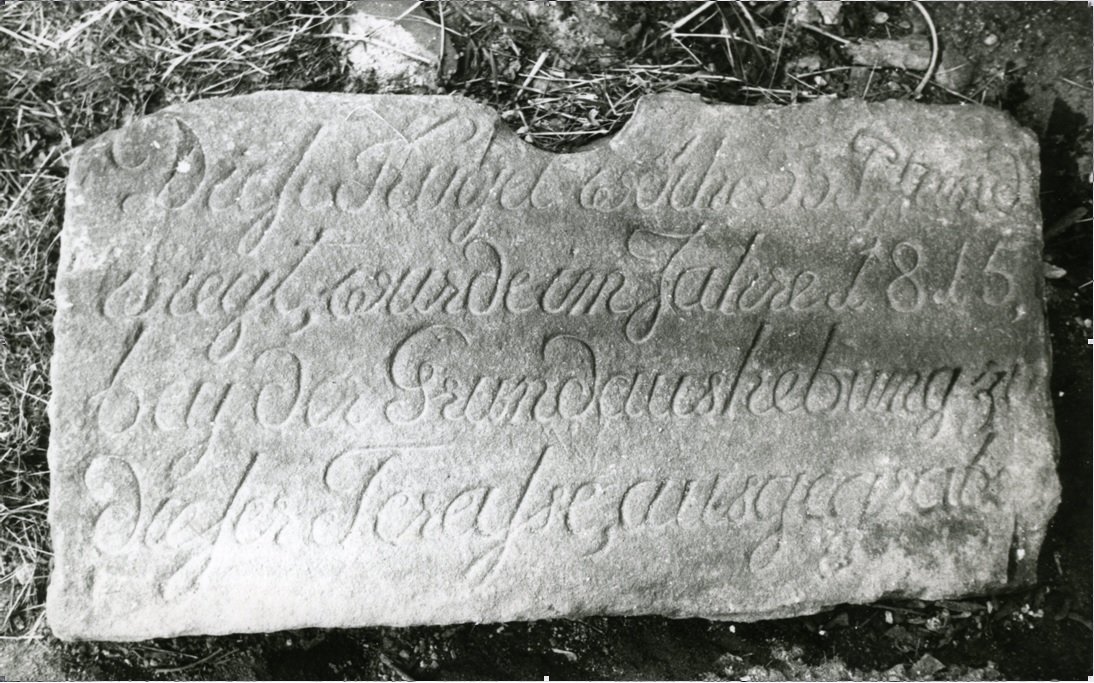 Diese Kugel welche 55 Pfund
wiegt, wurde im Jahre 1815,
bey der Grundaushebung zu
dieser Terasse, ausgegrab